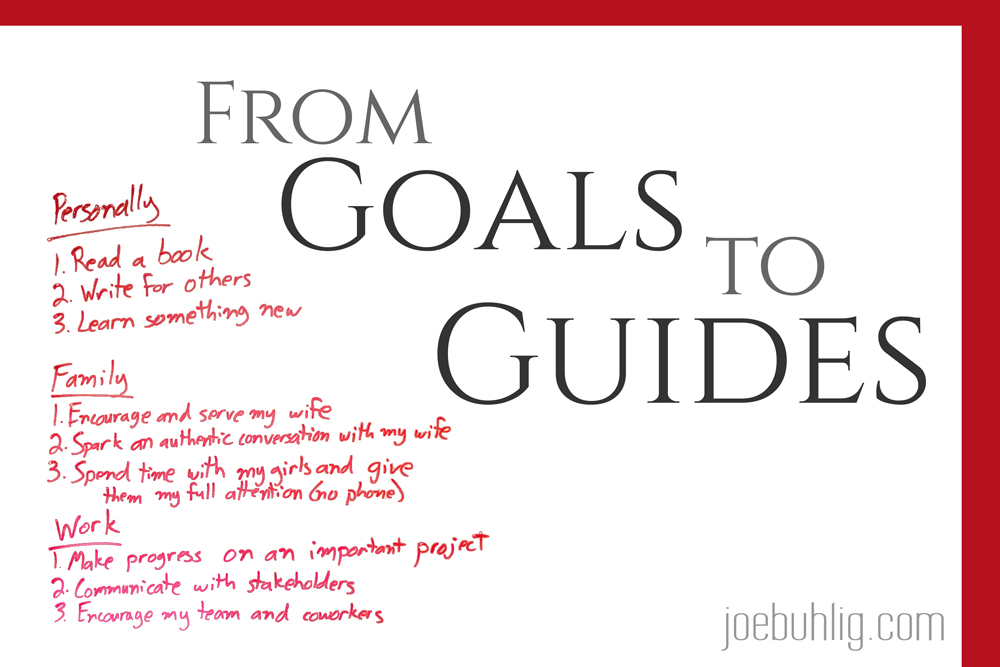 From
Goals
to
Guides
Personally
1. Read a book
2. Write for others
3. Learn something new
Family
1. Encourage and serve my wife
2. Spark an authentic conversation with my wife
3. Spend time with my girls and give
them my full attention (no phone)
Work
1. Make progress on an important project
2. Communicate with stakeholders
3. Encourage my team and coworkers
joebuhlig.com